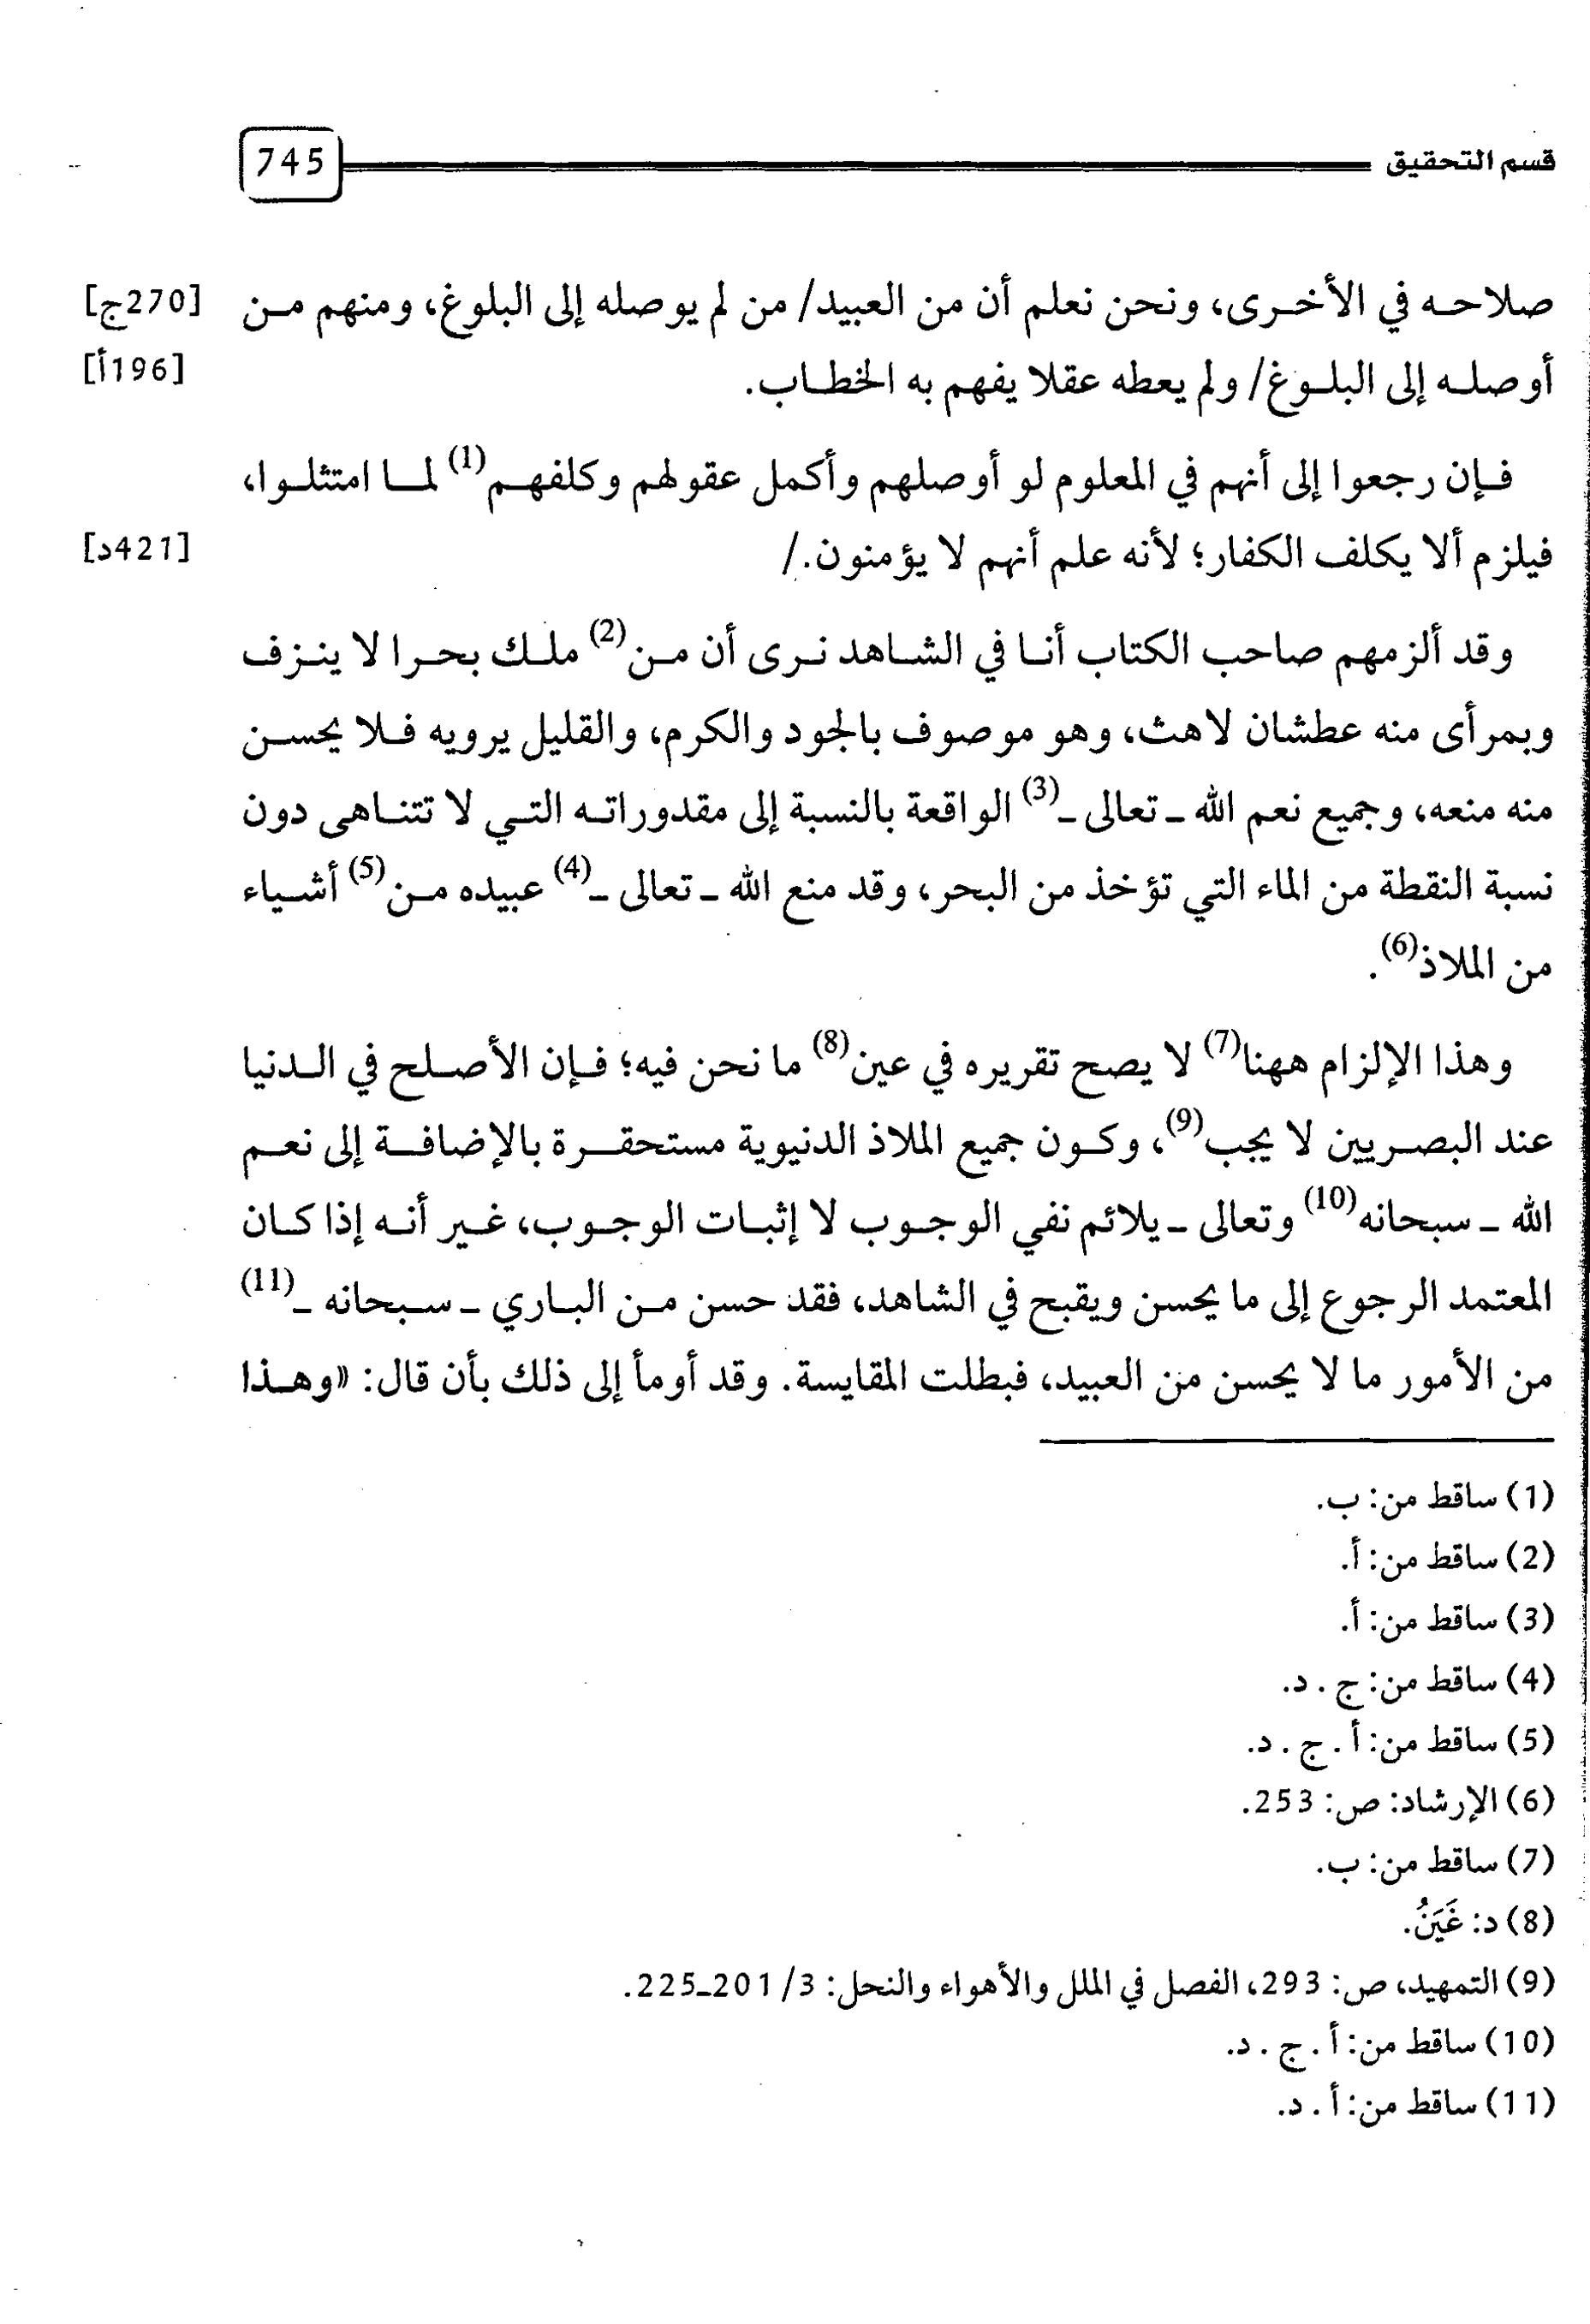 قسم التحقيق 745
صلاحه في الأخرى، ونحن نعلم أن من العبيد/ من لم يوصله إلى البلوغ، ومنهم من [270ج]
أوصله إلى البلوغ/ ولم يعطه عقلا يفهم به الخطاب. [196أ]
فإن رجعوا إلى أنهم في المعلوم لو أوصلهم وأكمل عقولهم وكلفهم(1) لما امتثلوا،
فيلزم ألا يكلف الكفار؛ لأنه علم أنهم لا يؤمنون./ [421د]
وقد ألزمهم صاحب الكتاب أنا في الشاهد نرى أن من(2) ملك بحرا لا ينزف
وبمرأى منه عطشان لاهث، وهو موصوف بالجود والكرم، والقليل يرويه فلا يحسن
منه منعه، وجميع نعم الله ـ تعالى ـ(3) الواقعة بالنسبة إلى مقدوراته التي لا تتناهى دون
نسبة النقطة من الماء التي تؤخذ من البحر، وقد منع الله ـ تعالى ـ(4) عبيده من(5) أشياء
من الملاذ(6).
وهذا الإلزام ههنا(7) لا يصح تقريره في عين(8) ما نحن فيه؛ فإن الأصلح في الدنيا
عند البصريين لا يجب(9)، وكون جميع الملاذ الدنيوية مستحقرة بالإضافة إلى نعم
الله ـ سبحانه(10) وتعالى ـ يلائم نفي الوجوب لا إثبات الوجوب، غير أنه إذا كان
المعتمد الرجوع إلى ما يحسن ويقبح في الشاهد، فقد حسن من الباري ـ سبحانه ـ(11)
من الأمور ما لا يحسن من العبيد، فبطلت المقايسة. وقد أومأ إلى ذلك بأن قال: «وهذا
(1) ساقط من: ب.
(2) ساقط من: أ.
(3) ساقط من: أ.
(4) ساقط من: ج . د.
(5) ساقط من: أ . ج . د.
(6) الإرشاد: ص: 253.
(7) ساقط من: ب.
(8) د: غَيَنُ.
(9) التمهيد، ص: 293، الفصل في الملل والأهواء والنحل: 3/ 201ـ225.
(10) ساقط من: أ . ج . د.
(11) ساقط من: أ . د.